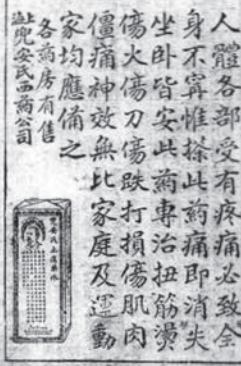 人體各部受有疼痛必致全
身不寗惟搽此药痛即消失
坐卧皆安此药專治扭筋燙
傷火傷刀傷跌打損傷肌肉
僵痛神效無比家庭及運動
家均應備之
各药房有售
上海兜安氏西药公司